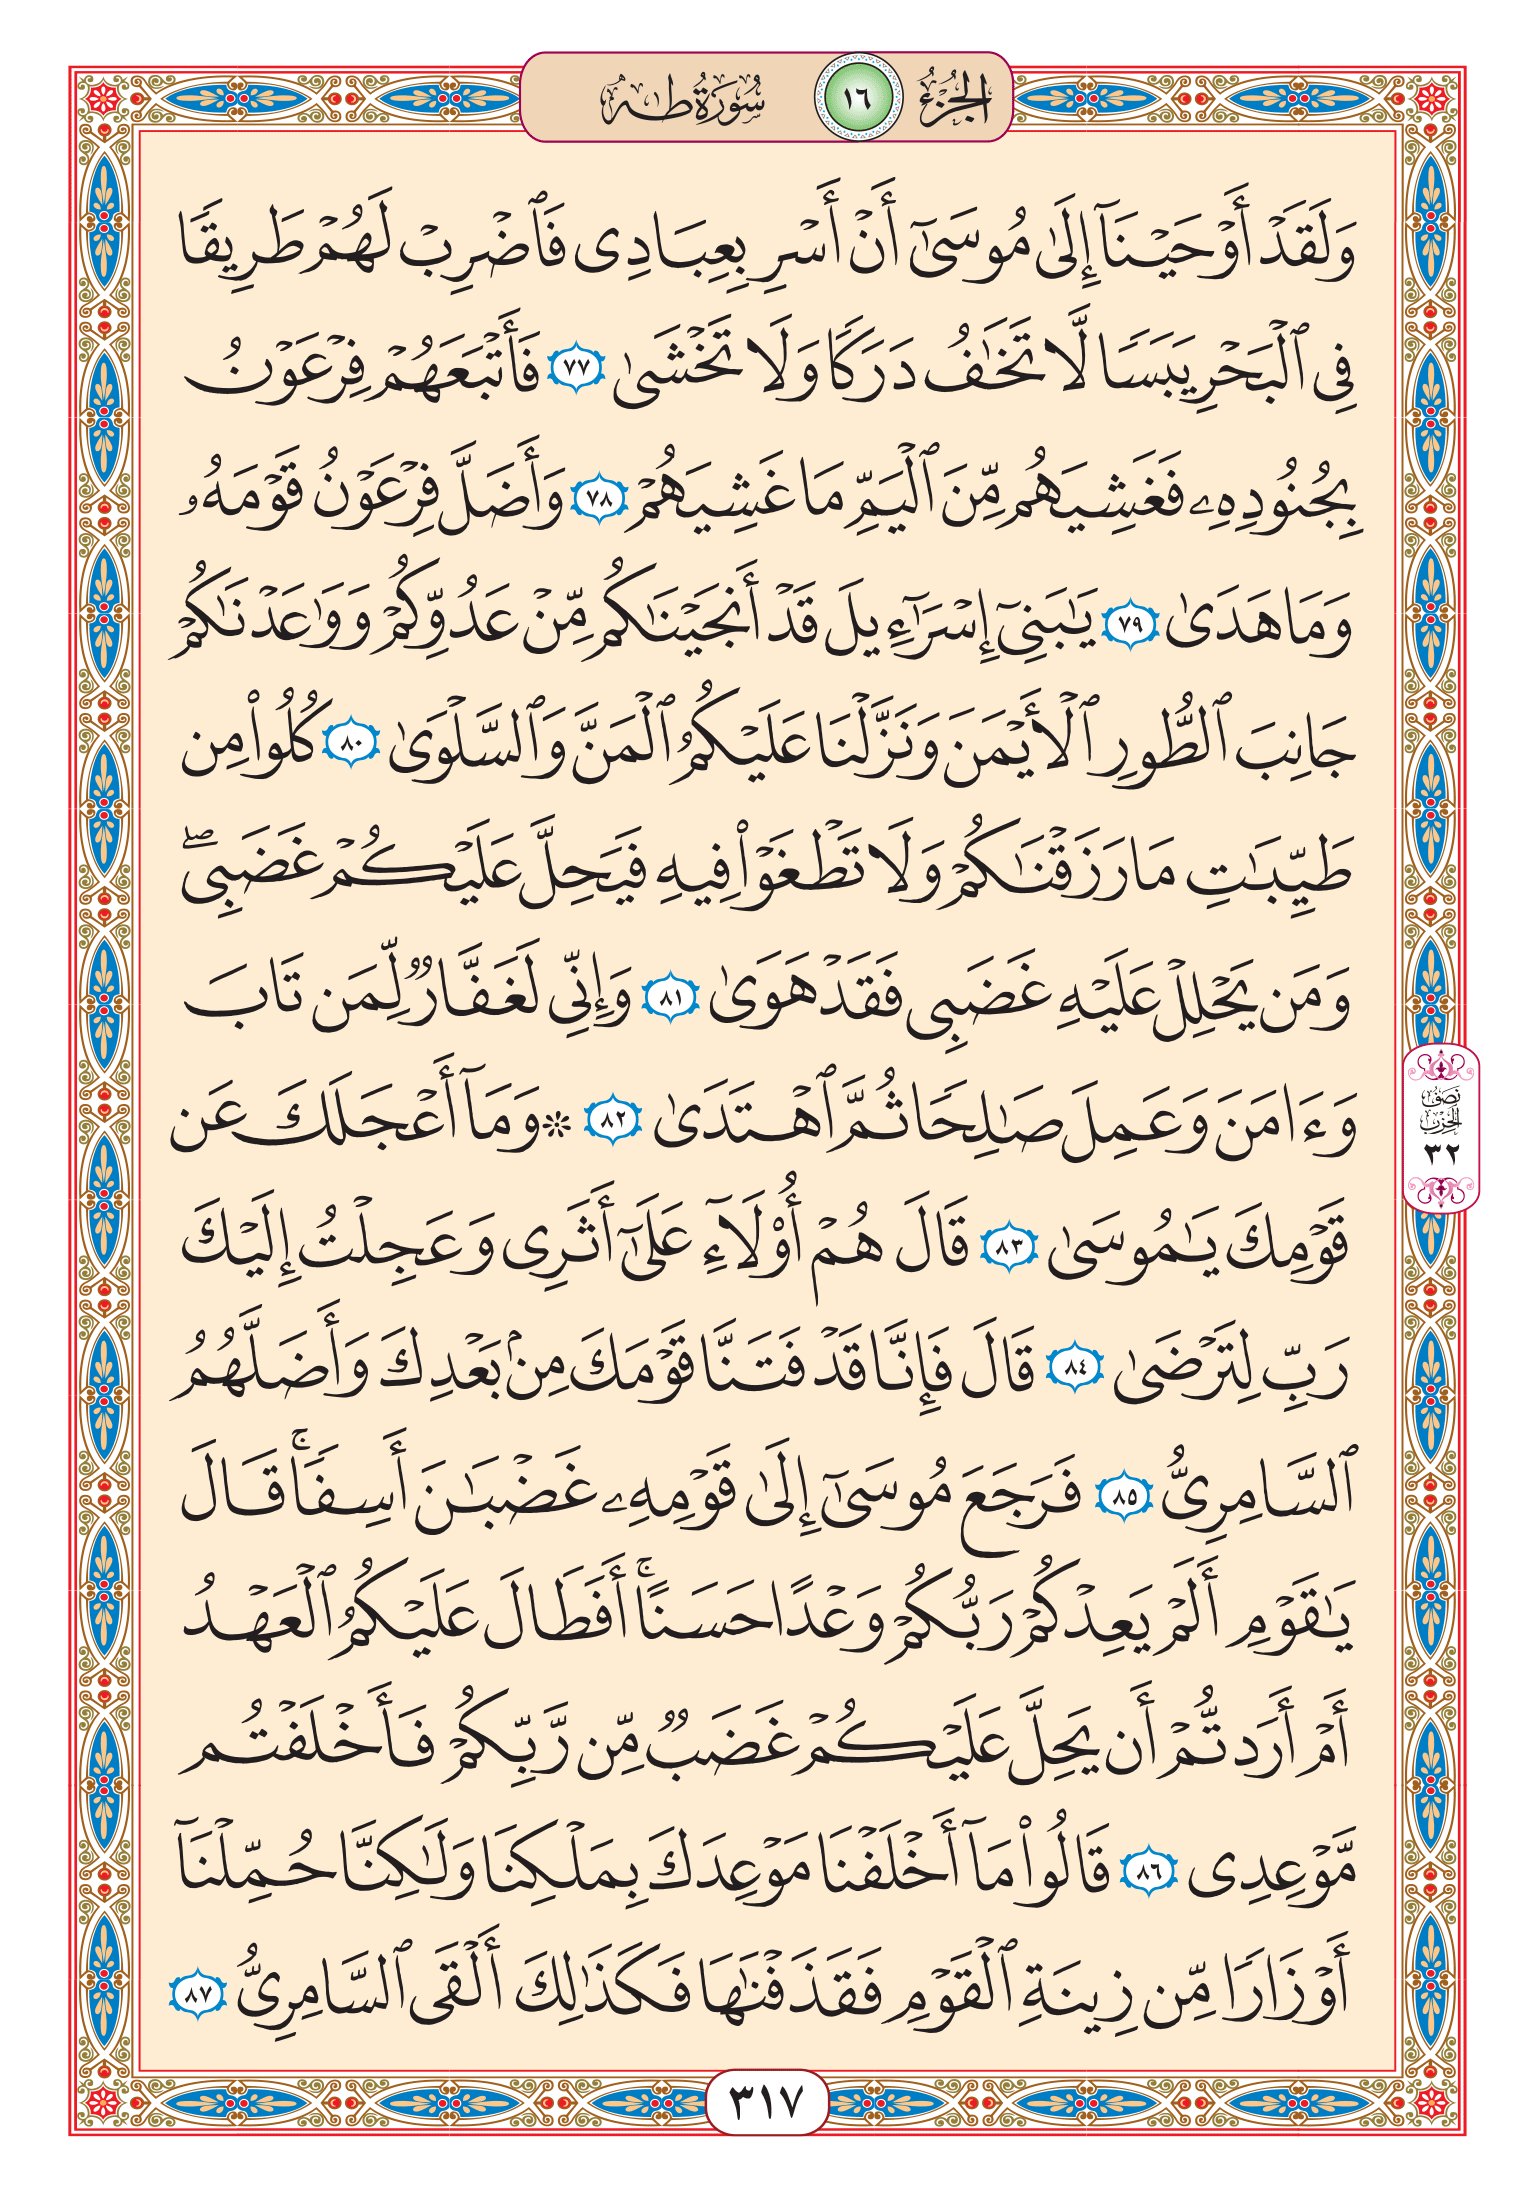 الجزء ١٦ سورة طه
وَلَقَدْ أَوْحَيْنَآ إِلَىٰ مُوسَىٰٓ أَنْ أَسْرِ بِعِبَادِى فَٱضْرِبْ لَهُمْ طَرِيقًا
فِى ٱلْبَحْرِ يَبَسًا لَّا تَخَٰفُ دَرَكًا وَلَا تَخْشَىٰ ٧٧ فَأَتْبَعَهُمْ فِرْعَوْنُ
بِجُنُودِهِۦ فَغَشِيَهُم مِّنَ ٱلْيَمِّ مَا غَشِيَهُمْ ٧٨ وَأَضَلَّ فِرْعَوْنُ قَوْمَهُۥ
وَمَا هَدَىٰ ٧٩ يَٰبَنِىٓ إِسْرَٰٓءِيلَ قَدْ أَنجَيْنَٰكُم مِّنْ عَدُوِّكُمْ وَوَٰعَدْنَٰكُمْ
جَانِبَ ٱلطُّورِ ٱلْأَيْمَنَ وَنَزَّلْنَا عَلَيْكُمُ ٱلْمَنَّ وَٱلسَّلْوَىٰ ٨٠ كُلُوا۟ مِن
طَيِّبَٰتِ مَا رَزَقْنَٰكُمْ وَلَا تَطْغَوْا۟ فِيهِ فَيَحِلَّ عَلَيْكُمْ غَضَبِىۖ
وَمَن يَحْلِلْ عَلَيْهِ غَضَبِى فَقَدْ هَوَىٰ ٨١ وَإِنِّى لَغَفَّارٌ لِّمَن تَابَ
وَءَامَنَ وَعَمِلَ صَٰلِحًا ثُمَّ ٱهْتَدَىٰ ٨٢ ۞ وَمَآ أَعْجَلَكَ عَن
نصف الحزب ٣٢
قَوْمِكَ يَٰمُوسَىٰ ٨٣ قَالَ هُمْ أُو۟لَآءِ عَلَىٰٓ أَثَرِى وَعَجِلْتُ إِلَيْكَ
رَبِّ لِتَرْضَىٰ ٨٤ قَالَ فَإِنَّا قَدْ فَتَنَّا قَوْمَكَ مِنۢ بَعْدِكَ وَأَضَلَّهُمُ
ٱلسَّامِرِىُّ ٨٥ فَرَجَعَ مُوسَىٰٓ إِلَىٰ قَوْمِهِۦ غَضْبَٰنَ أَسِفًاۚ قَالَ
يَٰقَوْمِ أَلَمْ يَعِدْكُمْ رَبُّكُمْ وَعْدًا حَسَنًاۚ أَفَطَالَ عَلَيْكُمُ ٱلْعَهْدُ
أَمْ أَرَدتُّمْ أَن يَحِلَّ عَلَيْكُمْ غَضَبٌ مِّن رَّبِّكُمْ فَأَخْلَفْتُم
مَّوْعِدِى ٨٦ قَالُوا۟ مَآ أَخْلَفْنَا مَوْعِدَكَ بِمَلْكِنَا وَلَٰكِنَّا حُمِّلْنَآ
أَوْزَارًا مِّن زِينَةِ ٱلْقَوْمِ فَقَذَفْنَٰهَا فَكَذَٰلِكَ أَلْقَى ٱلسَّامِرِىُّ ٨٧
٣١٧